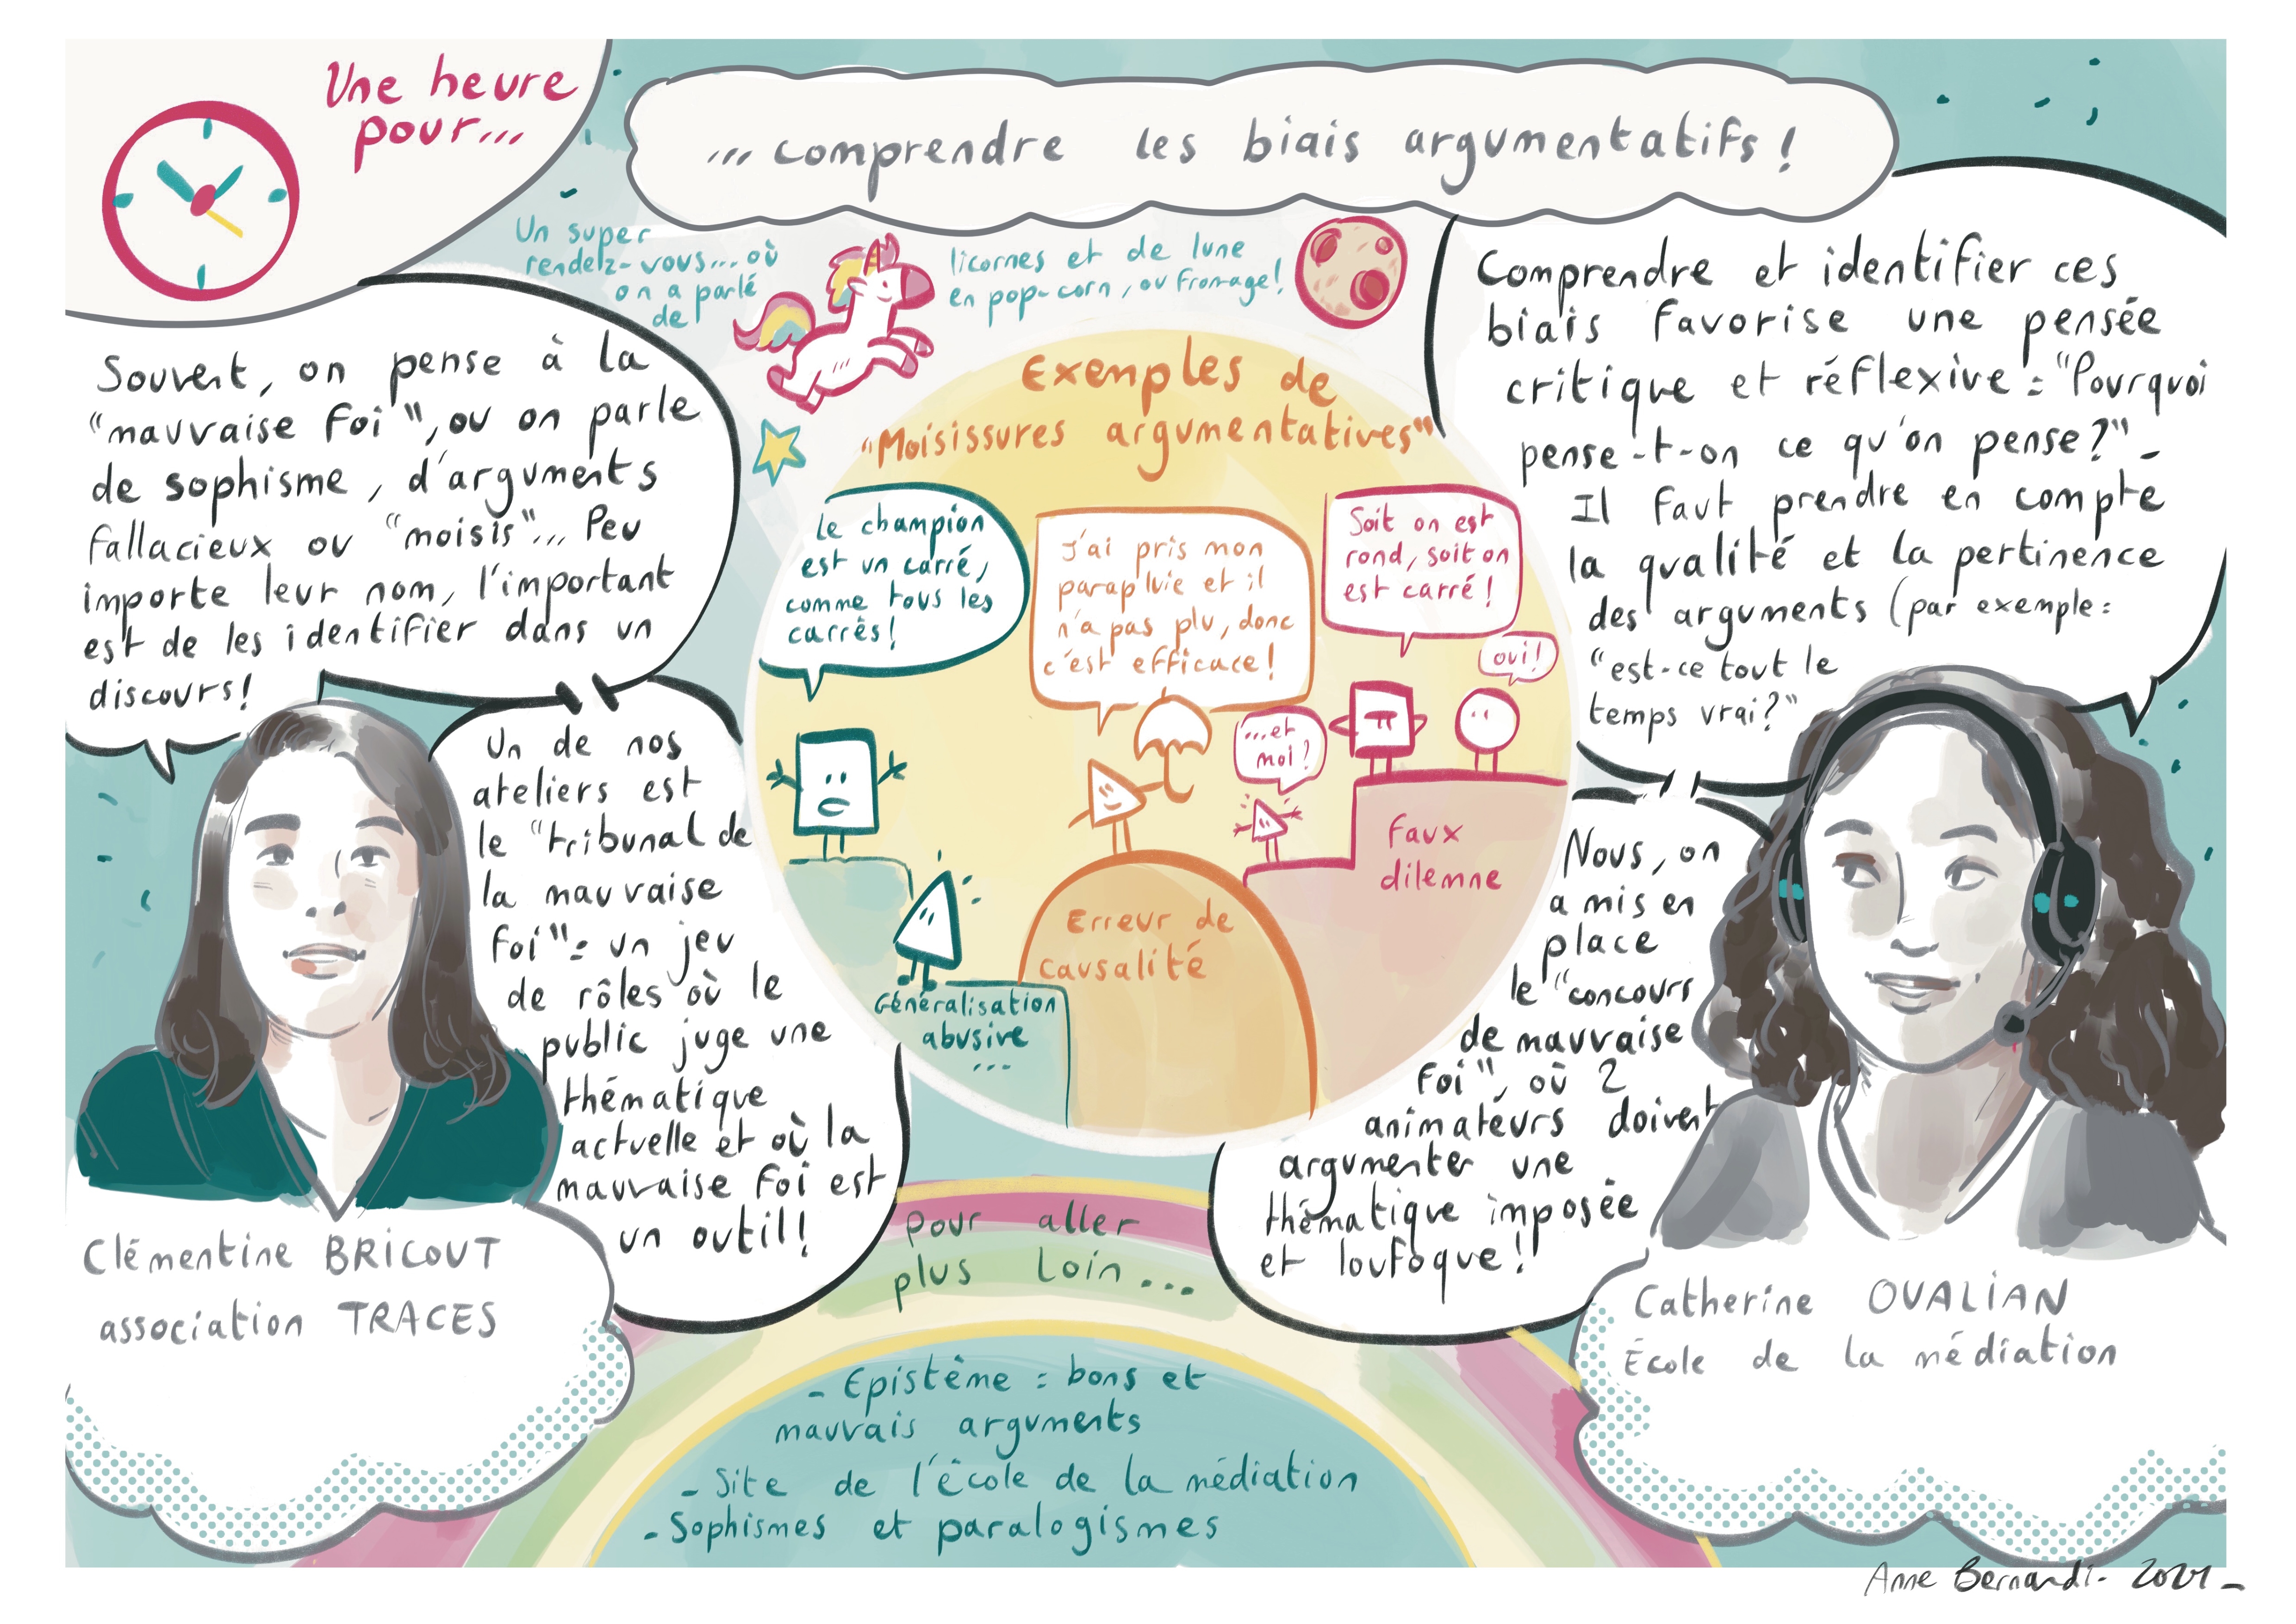 Une heure
pour...
... comprendre les biais argumentatifs !
Un super
rendez-vous... où
on a parlé
de
licornes et de lune
en pop-corn, ou fromage !
Souvent, on pense à la
"mauvaise foi", ou on parle
de sophisme, d'arguments
fallacieux ou "moisis"... Peu
importe leur nom, l'important
est de les identifier dans un
discours !
Un de nos
ateliers est
le "tribunal de
la mauvaise
foi" : un jeu
de rôles où le
public juge une
thématique
actuelle et où la
mauvaise foi est
un outil !
Clémentine BRICOUT
association TRACES
Exemples de
"Moisissures argumentatives"
Le champion
est un carré,
comme tous les
carrés !
Généralisation
abusive
...
J'ai pris mon
parapluie et il
n'a pas plu, donc
c'est efficace !
Erreur de
causalité
Soit on est
rond, soit on
est carré !
oui !
...et
moi ?
Faux
dilemne
Comprendre et identifier ces
biais favorise une pensée
critique et réflexive : "Pourquoi
pense-t-on ce qu'on pense ?" -
Il faut prendre en compte
la qualité et la pertinence
des arguments (par exemple :
"est-ce tout le
temps vrai ?"
Nous, on
a mis en
place
le "concours
de mauvaise
foi", où 2
animateurs doivent
argumenter une
thématique imposée
et loufoque !
Catherine OUALIAN
École de la médiation
pour aller
plus loin...
- Epistême : bons et
mauvais arguments
- Site de l'école de la médiation
- Sophismes et paralogismes
Anne Bernardi - 2021 -